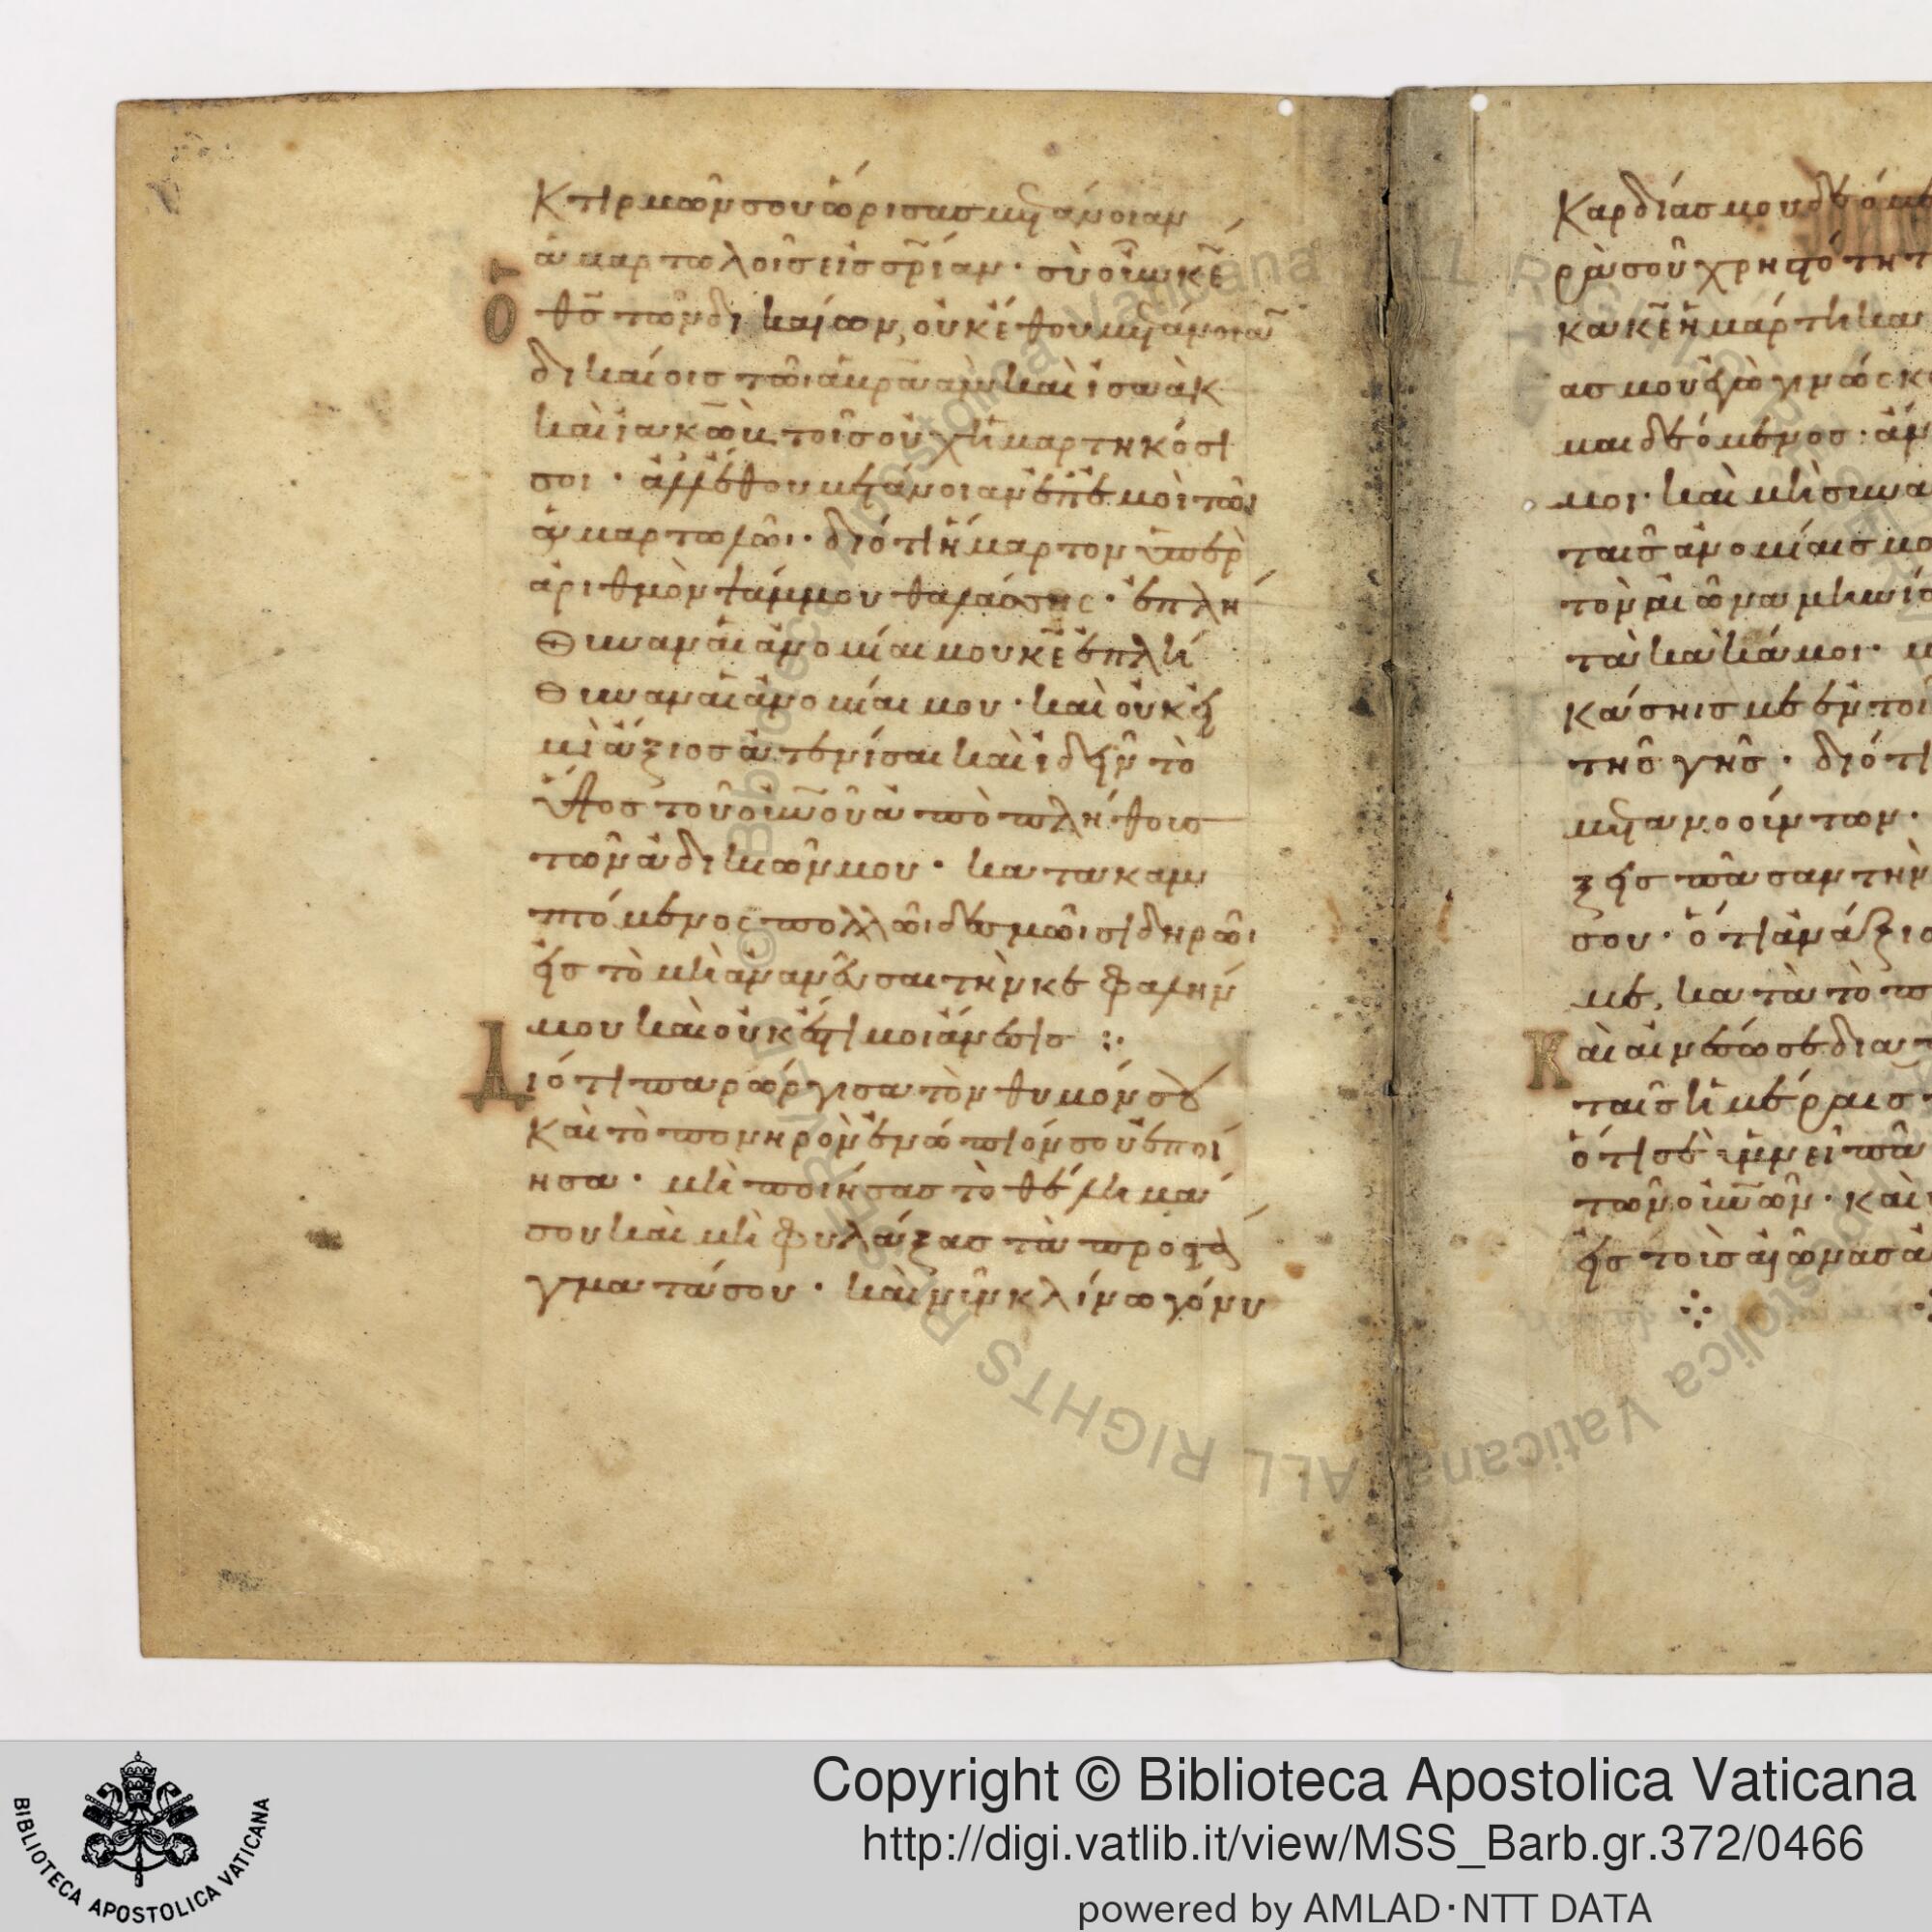 κτιρμῶν σου ὥρισας μετάνοιαν
ἁμαρτωλοῖς εἰς σρίαν· σὺ οὖν κε
Ὁ θς τῶν δικαίων, οὐκ ἔθου μετάνοιαν
δικαίοις τῶι ἁβραὰμ καὶ ἰσαὰκ
καὶ ἰακὼβ τοῖς οὐχ ἡμαρτηκόσι
σοι· ἀλλ' ἔθου μετάνοιαν ἐπ' ἐμοὶ τῶι
ἁμαρτωλῶι· διότι ἥμαρτον ὑπὲρ
ἀριθμὸν ψάμμου θαλάσσης· ἐπλή
θυναν αἱ ἀνομίαι μου κε ἐπλή
θυναν αἱ ἀνομίαι μου· καὶ οὐκ εἰ
μὶ ἄξιος ἀτενίσαι καὶ ἰδεῖν τὸ
ὕψος τοῦ οὐνοῦ ἀπὸ πλήθους
τῶν ἀδικιῶν μου· κατακαμ
πτόμενος πολλῶι δεσμῶι σιδηρῶι
εἰς τὸ μὴ ἀνανεῦσαι τὴν κεφαλήν
μου καὶ οὐκ ἔστι μοι ἄνεσις :·
Διότι παρώργισα τὸν θυμόν σου
καὶ τὸ πονηρὸν ἐνώπιόν σου ἐποί
ησα· μὴ ποιήσας τὸ θέλημά
σου καὶ μὴ φυλάξας τὰ προστά
γματά σου· καὶ νῦν κλίνω γόνυ
καρδίας μου δεόμε
ρὰ σοῦ χρηστότητ
κα κε ἡμάρτηκα
ας μου ἐγὼ γινώσκ
μαι δεόμενος· ἄν
μοι· καὶ μὴ συνα
ταῖς ἀνομίαις μο
τὸν αἰῶνα μηνί
τὰ κακά μοι· μ
κάσηις με ἐν τοῖ
της γῆς· διότι
μετανοούντων·
ξεις πᾶσαν τὴν
σου· ὅτι ἀνάξιο
με, κατὰ τὸ π
Καὶ αἰνέσω σε δια π
ταῖς ἡμέραις τ
ὅτι σὲ ὑμνεῖ πᾶ
τῶν οὐνῶν· καὶ
εἰς τοὺς αἰῶνας ἀ
Copyright © Biblioteca Apostolica Vaticana
http://digi.vatlib.it/view/MSS_Barb.gr.372/0466
powered by AMLAD·NTT DATA
BIBLIOTECA APOSTOLICA VATICANA